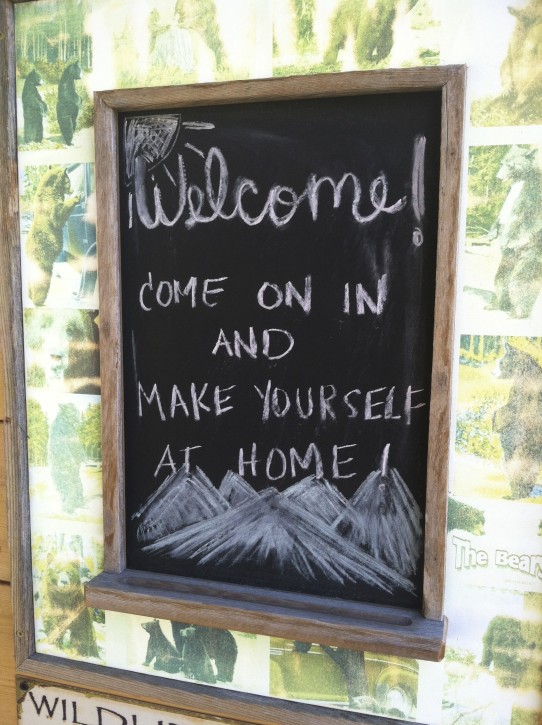 Welcome!
COME ON IN
AND
MAKE YOURSELF
AT HOME!
The Bear
WILDLI